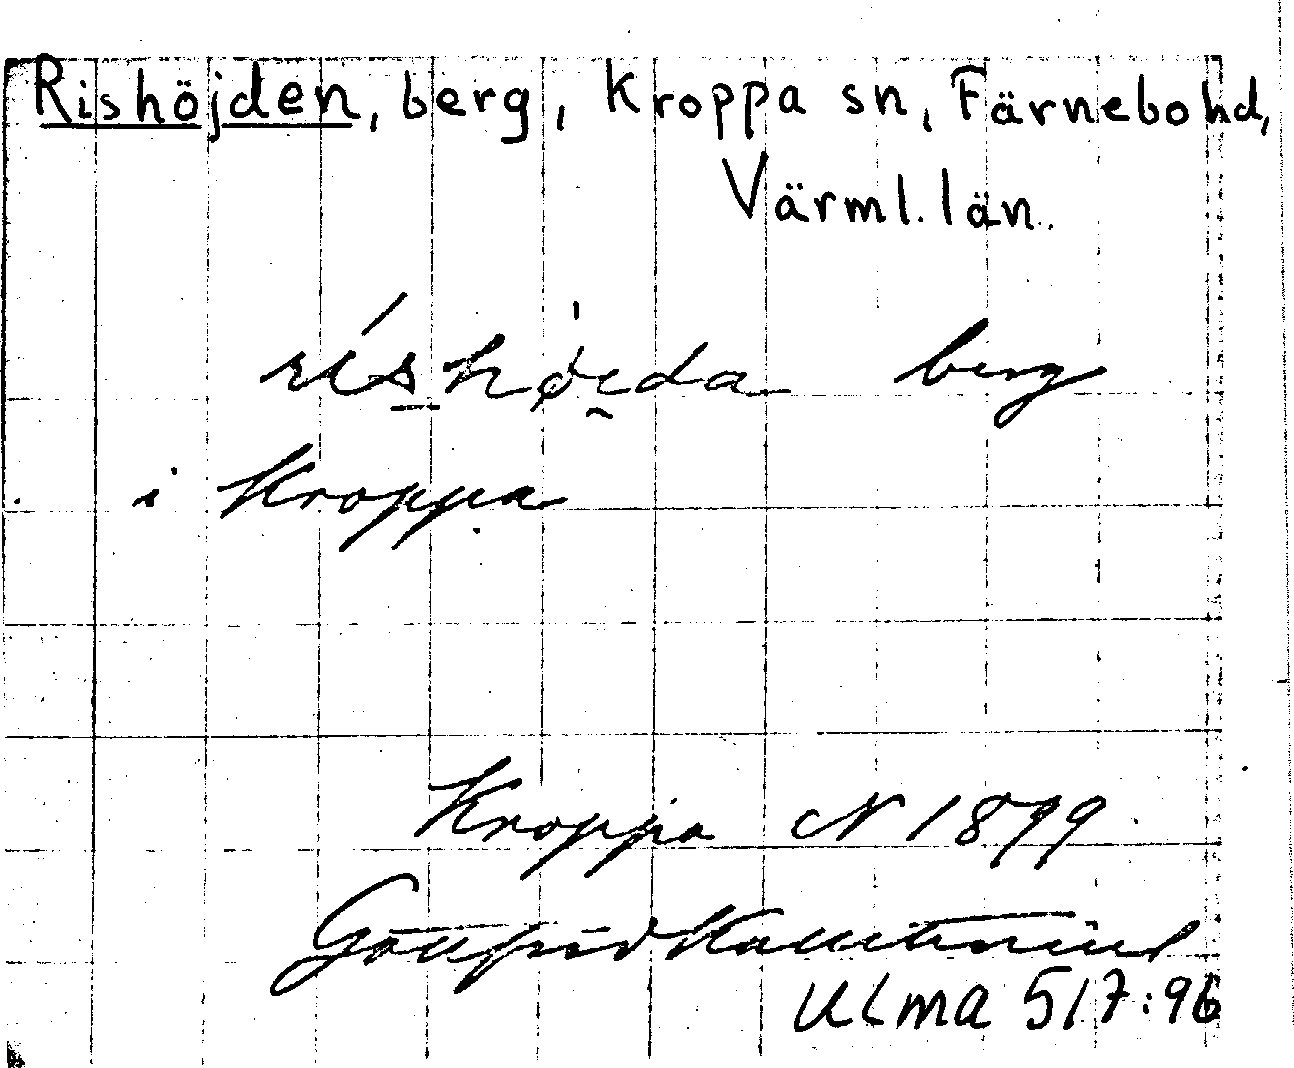 Rishöjden, berg, Kroppa sn, Färnebo hd,
Värml. län.
ríshøi̯da berg
i Kroppa
Kroppa N 1899
Gottfrid Kallstenius
ULMA 517:96